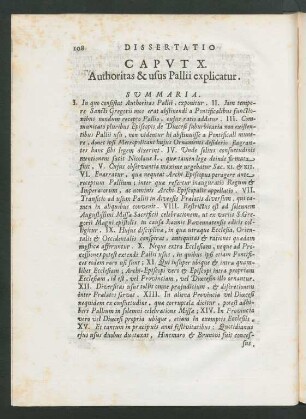 108 DISSERTATIO
CAPUT X.
Authoritas & usus Pallii explicatur.
SUMMARIA.
I. In quo consistat Authoritas Pallii, exponitur. II. Jam tempore
Sancti Gregorii mos erat abstinendi a Pontificalibus functionibus
nondum recepto Pallio, cujus ratio additur. III. Communicati
pluribus Episcopis de Diœcesi suburbicaria non existentibus
Pallii usu, non videntur hi abstinuisse a Pontificali munere,
donec ipsi Metropolitani hujus Ornamenti desiderio flagrantes
hanc sibi legem dixerint. IV. Unde saltem consuetudinis
mentionem facit Nicolaus I., quæ tamen lege deinde firmata
fuit. V. Cujus observantia maxime urgebatur Sæc. XI. & XII.
VI. Enarratur, quæ nequeat Archi-Episcopus peragere ante
receptum Pallium, inter quæ refertur inauguratio Regum &
Imperatorum, ut omittat Archi-Episcopales appellatio. VII.
Transitio ad usum Pallii in diversis Prælatis diversum, qui tamen
in aliquibus convenit. VIII. Restrictus est ad solemnem
Augustissimi Missæ Sacrificii celebrationem, ut ex variis S. Gregorii
Magni epistolis, in causa Joannis Ravennatensis editis colligitur.
IX. Hujus disciplina, in qua utraque Ecclesia, Orientalis
& Occidentalis consentit, antiquitas & rationes quædam
mystica afferuntur. X. Neque extra Ecclesiam, neque ad Processiones
potest extendi Pallii usus, in quibus ipsi etiam Pontifici
eodem non est fas uti; XI. Qui insuper ubique & intra quamlibet
Ecclesiam; Archi-Episcopi vero & Episcopi intra propriam
Ecclesiam, id est, vel Provinciam, vel Diœcesin illo ornatur.
XII. Diversitas usus Pallii citra præjudicium, & distractionem
inter Prælatos servat. XIII. In aliena Provincia vel Diœcesi
nequidem ex consuetudine, quæ corruptela dicitur, potest adhiberi
Pallium in solemni celebratione Missæ; XIV. In Provincia
vero vel Diœcesi propria ubique, etiam in exemptis Ecclesiis.
XV. Et tantum in præcipuis anni festivitatibus; Quotidianus
ejus usus duobus duntaxat, Hincmaro & Brunoni fuit concessus,